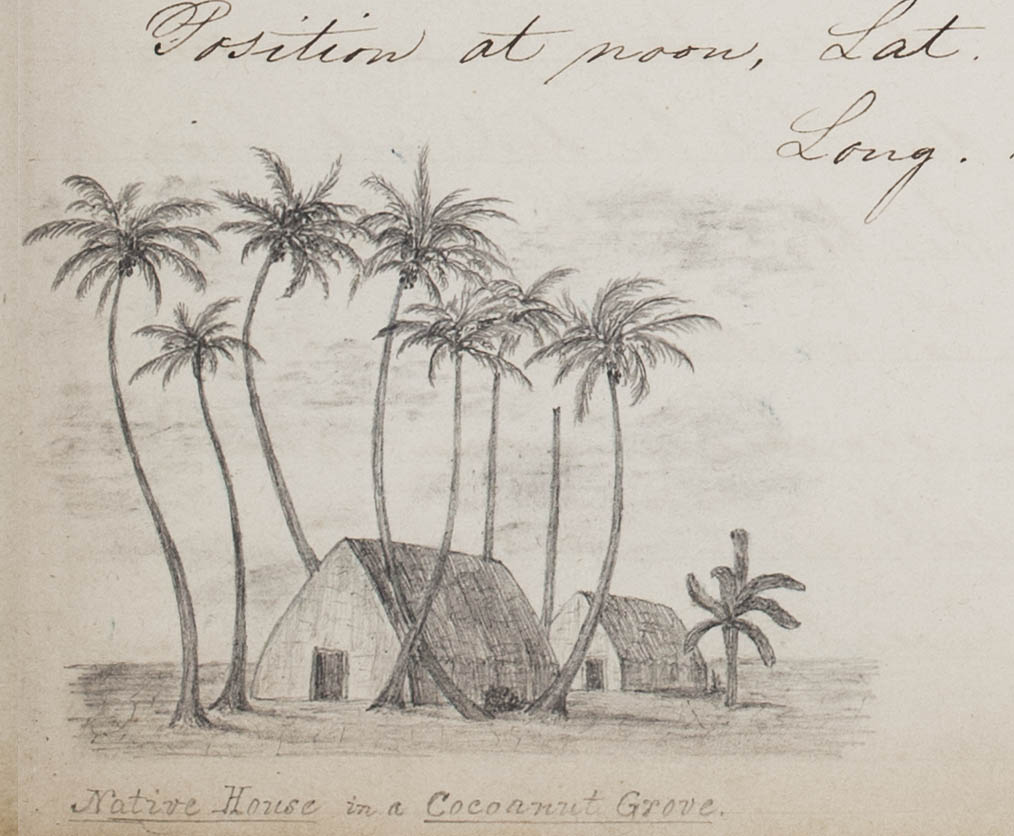 Position at noon, Lat.
Long.
Native House in a Cocoanut Grove.